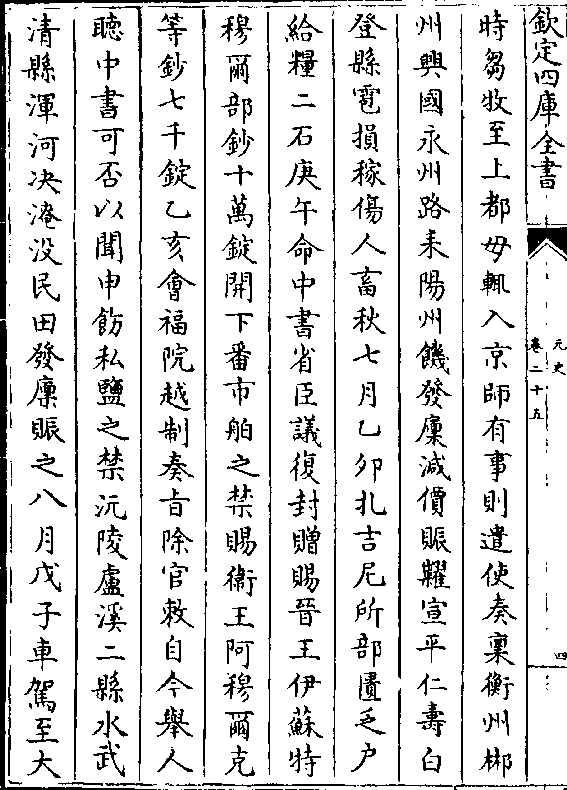 欽定四庫全書
元史
卷二十五
四
時芻牧至上都毋輒入京師有事則遣使奏稟衡州郴
州興國永州路耒陽州饑發廩減價賑糶宣平仁壽白
登縣雹損稼傷人畜秋七月乙卯扎吉尼所部匱乏户
給糧二石庚午命中書省臣議復封贈賜晉王伊蘇特
穆爾部鈔十萬錠開下番市舶之禁賜衛王阿穆爾克
等鈔七千錠乙亥會福院越制奏旨除官敕自今舉人
聽中書可否以聞申飭私鹽之禁沅陵盧溪二縣水武
清縣渾河決淹没民田發廩賑之八月戊子車駕至大